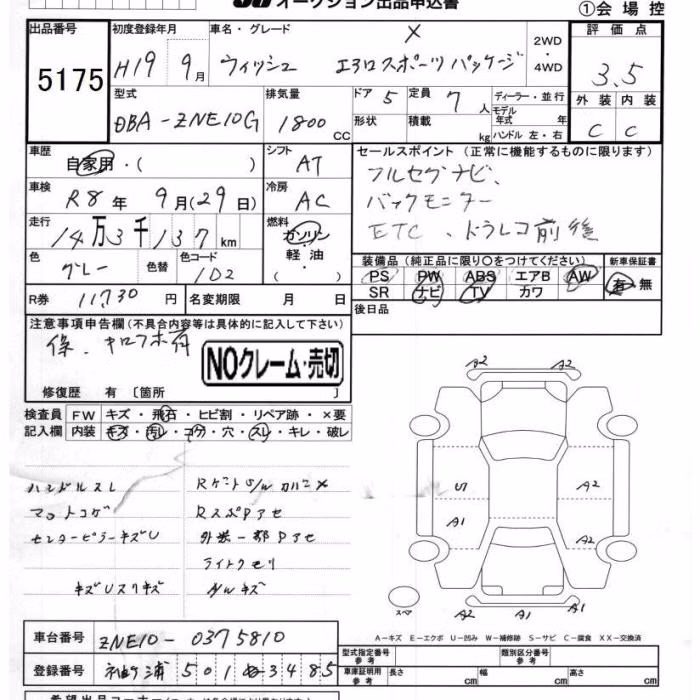 オークション出品申込書
①会場控
出品番号 5175
初度登録年月 H19年9月
車名・グレード ウィッシュ X エアロスポーツパッケージ
2WD・4WD
評価点 3.5
型式 DBA-ZNE10G
排気量 1800cc
ドア 5 定員 7人
形状 積載 kg
ディーラー・並行
モデル年式 年
ハンドル 左・右
外装 C 内装 C
車歴 自家用・( )
シフト AT
車検 R8年9月(29日)
冷房 AC
走行 14万3千137km
燃料 ガソリン・軽油・
色 グレー 色替 色コード 1D2
R券 11730円 名変期限 月 日
セールスポイント(正常に機能するものに限ります)
フルセグナビ、
バックモニター
ETC、ドラレコ前後
装備品(純正品に限り○をつけてください) 新車保証書
PS PW ABS エアB AW 有・無
SR ナビ TV カワ
後日品
注意事項申告欄(不具合内容等は具体的に記入して下さい)
保、
NOクレーム・売切
修復歴 有〔箇所 〕
検査員 FW キズ・飛石・ヒビ割・リペア跡・×要
記入欄 内装 キズ・汚レ・コゲ・穴・スレ・キレ・破レ
A2 A2
ハンドルスレ
マットコゲ
センターピラーキズU
キズUスリキズ
外装一部Pアセ
ライトクモリ
AWキズ
U1 A2
A1 A2
スペア
A2 A1 A2
A-キズ E-エクボ U-凹み W-補修跡 S-サビ C-腐食 XX-交換済
車台番号 ZNE10-0375810
型式指定番号 参考 類別区分番号 参考
登録番号 袖ヶ浦 501 ぬ 3485
車庫証明用 参考 長さ cm 幅 cm 高さ cm